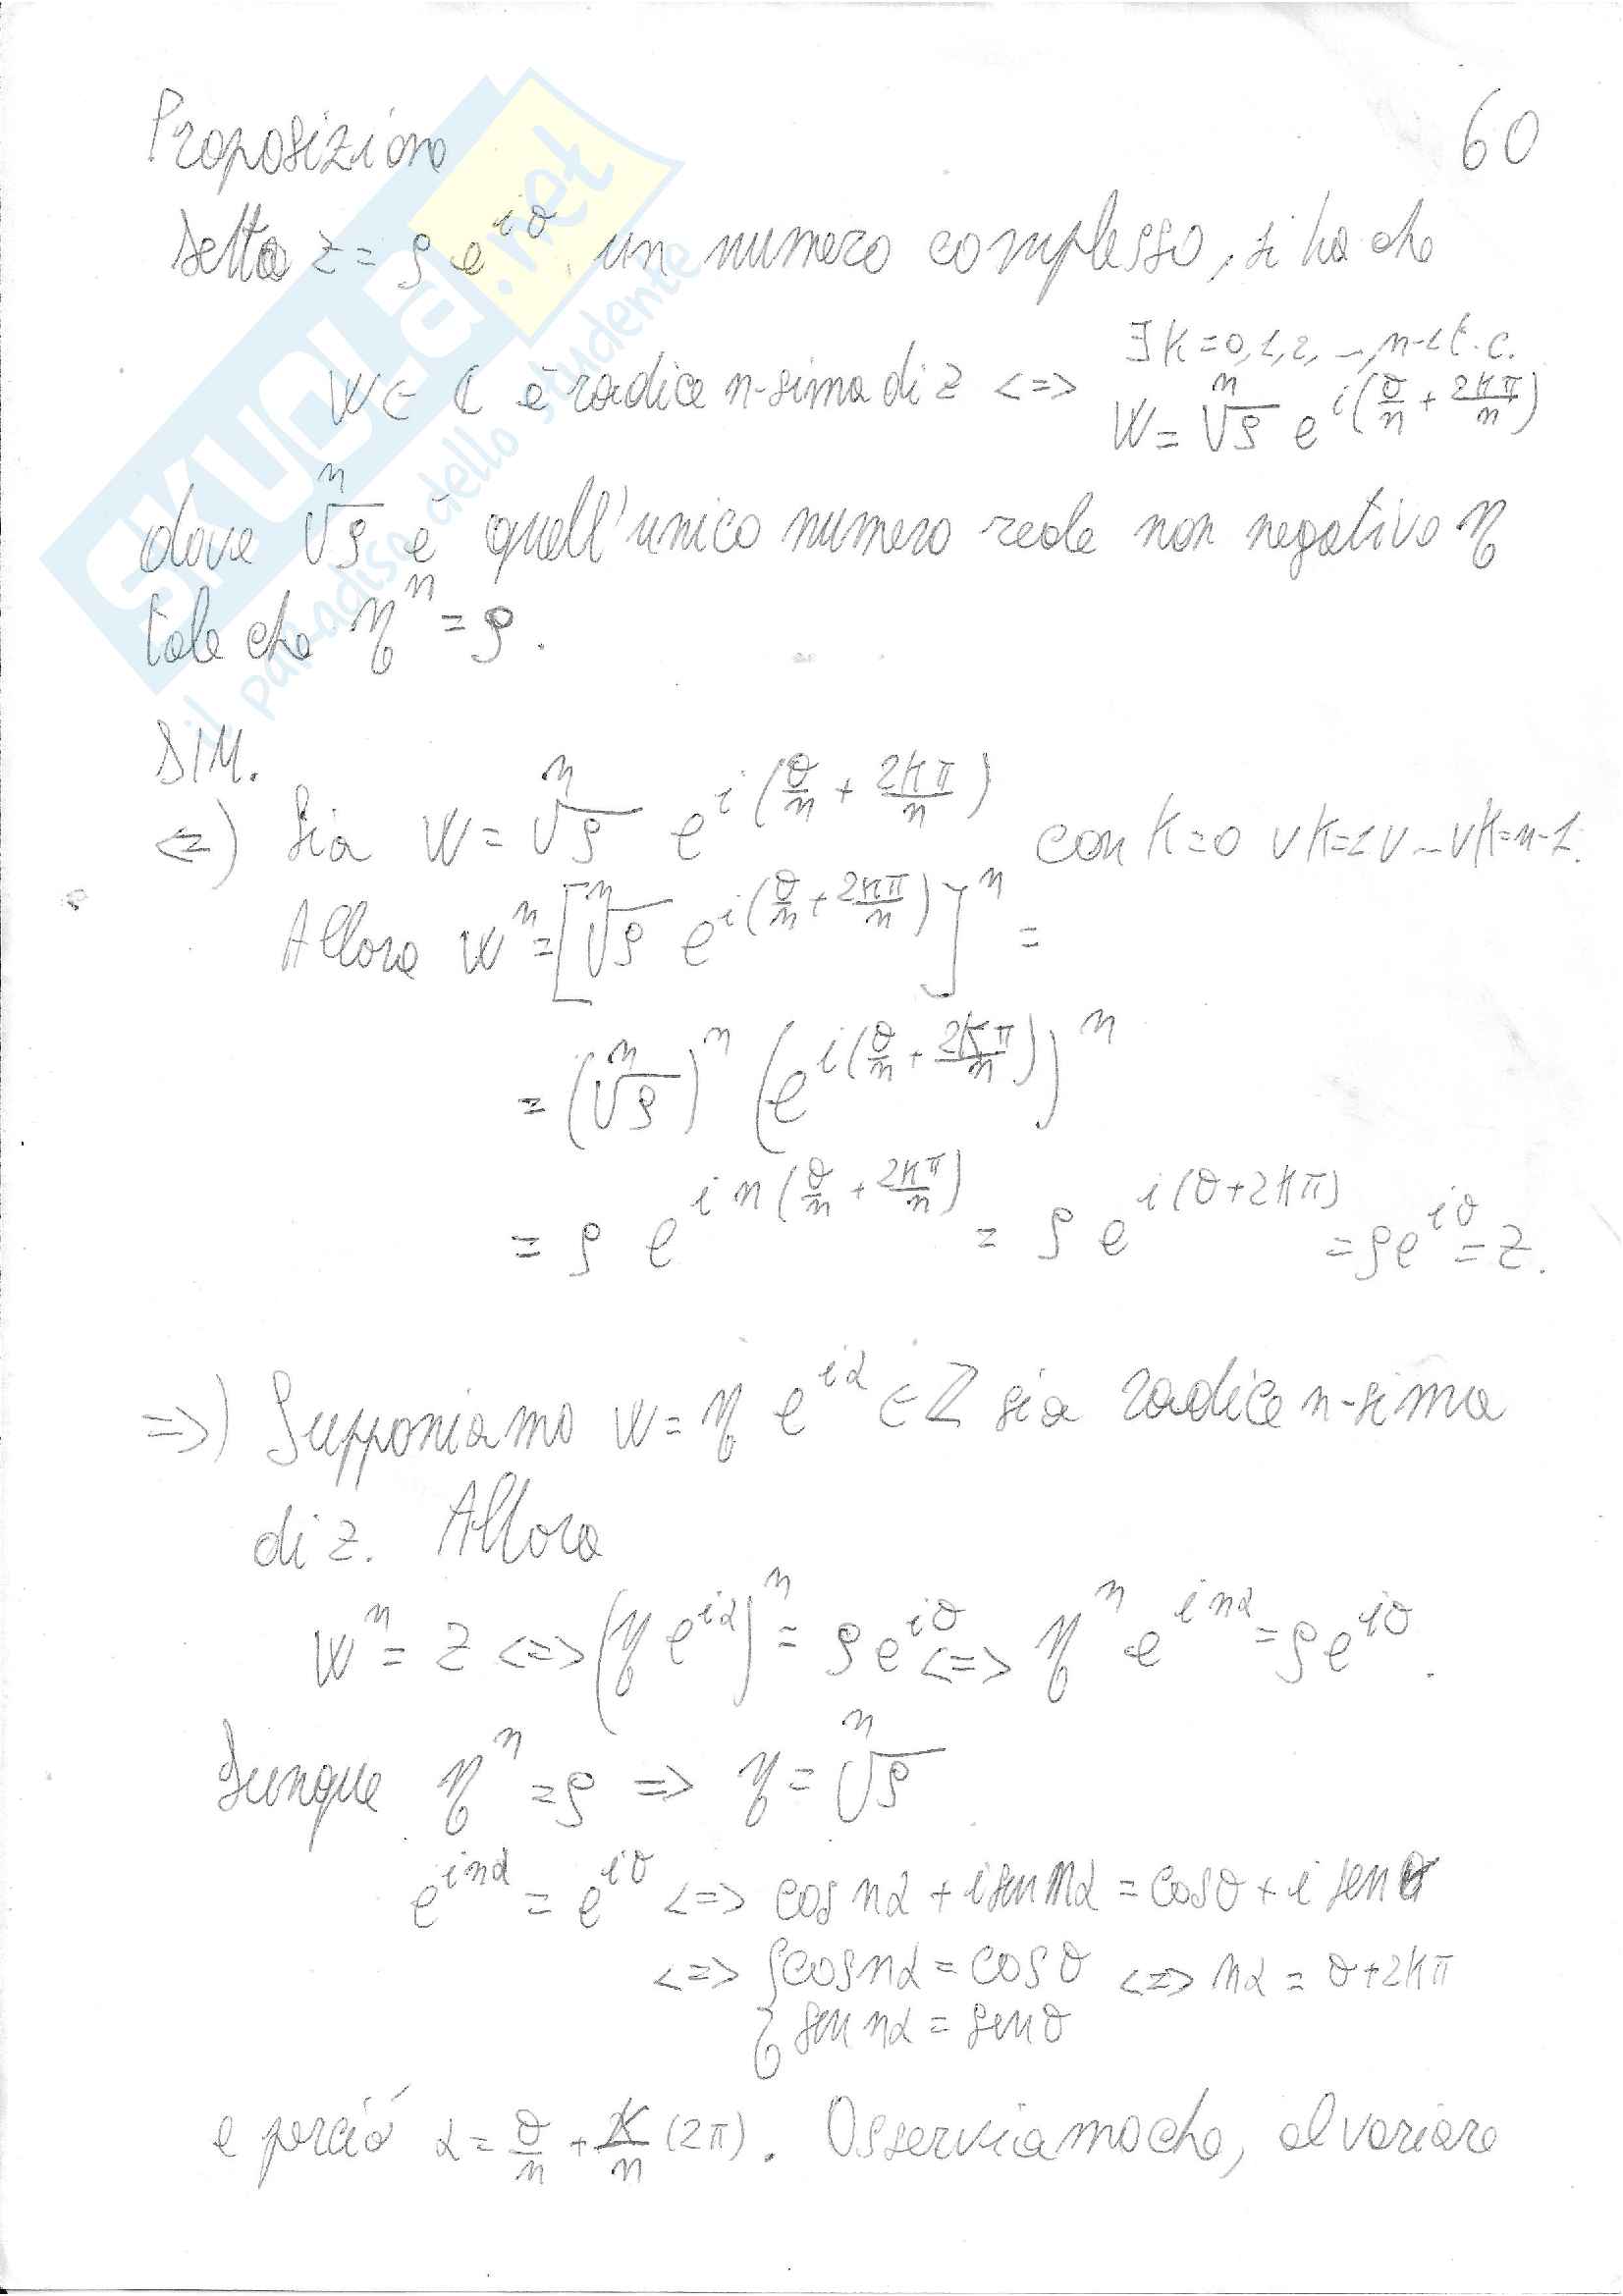 Proposizione 60
Detto z = ρ e^{iθ} un numero complesso, si ha che
∃ K = 0,1,2, ..., n-1 t.c.
W ∈ ℂ è radice n-sima di z <=> W = ⁿ√ρ e^{i(θ/n + 2Kπ/n)}
dove ⁿ√ρ è quell'unico numero reale non negativo η
tale che η^n = ρ.
DIM.
<=) Sia W = ⁿ√ρ e^{i(θ/n + 2Kπ/n)} con K=0 ∨ K=1 ∨ ... ∨ K=n-1.
Allora w^n = [ⁿ√ρ e^{i(θ/n + 2Kπ/n)}]^n =
= (ⁿ√ρ)^n (e^{i(θ/n + 2Kπ/n)})^n
= ρ e^{in(θ/n + 2Kπ/n)} = ρ e^{i(θ+2Kπ)} = ρe^{iθ} = z.
=>) Supponiamo w = η e^{iα} ∈ ℤ sia radice n-sima
di z. Allora
w^n = z <=> (η e^{iα})^n = ρ e^{iθ} <=> η^n e^{inα} = ρ e^{iθ}.
Dunque η^n = ρ => η = ⁿ√ρ
e^{inα} = e^{iθ} <=> cos nα + i sen nα = cos θ + i sen θ
<=> { cos nα = cos θ <=> nα = θ + 2Kπ
{ sen nα = sen θ
e perciò α = θ/n + K/n (2π). Osserviamo che, al variare
SKUOLA.net
il paradiso dello studente